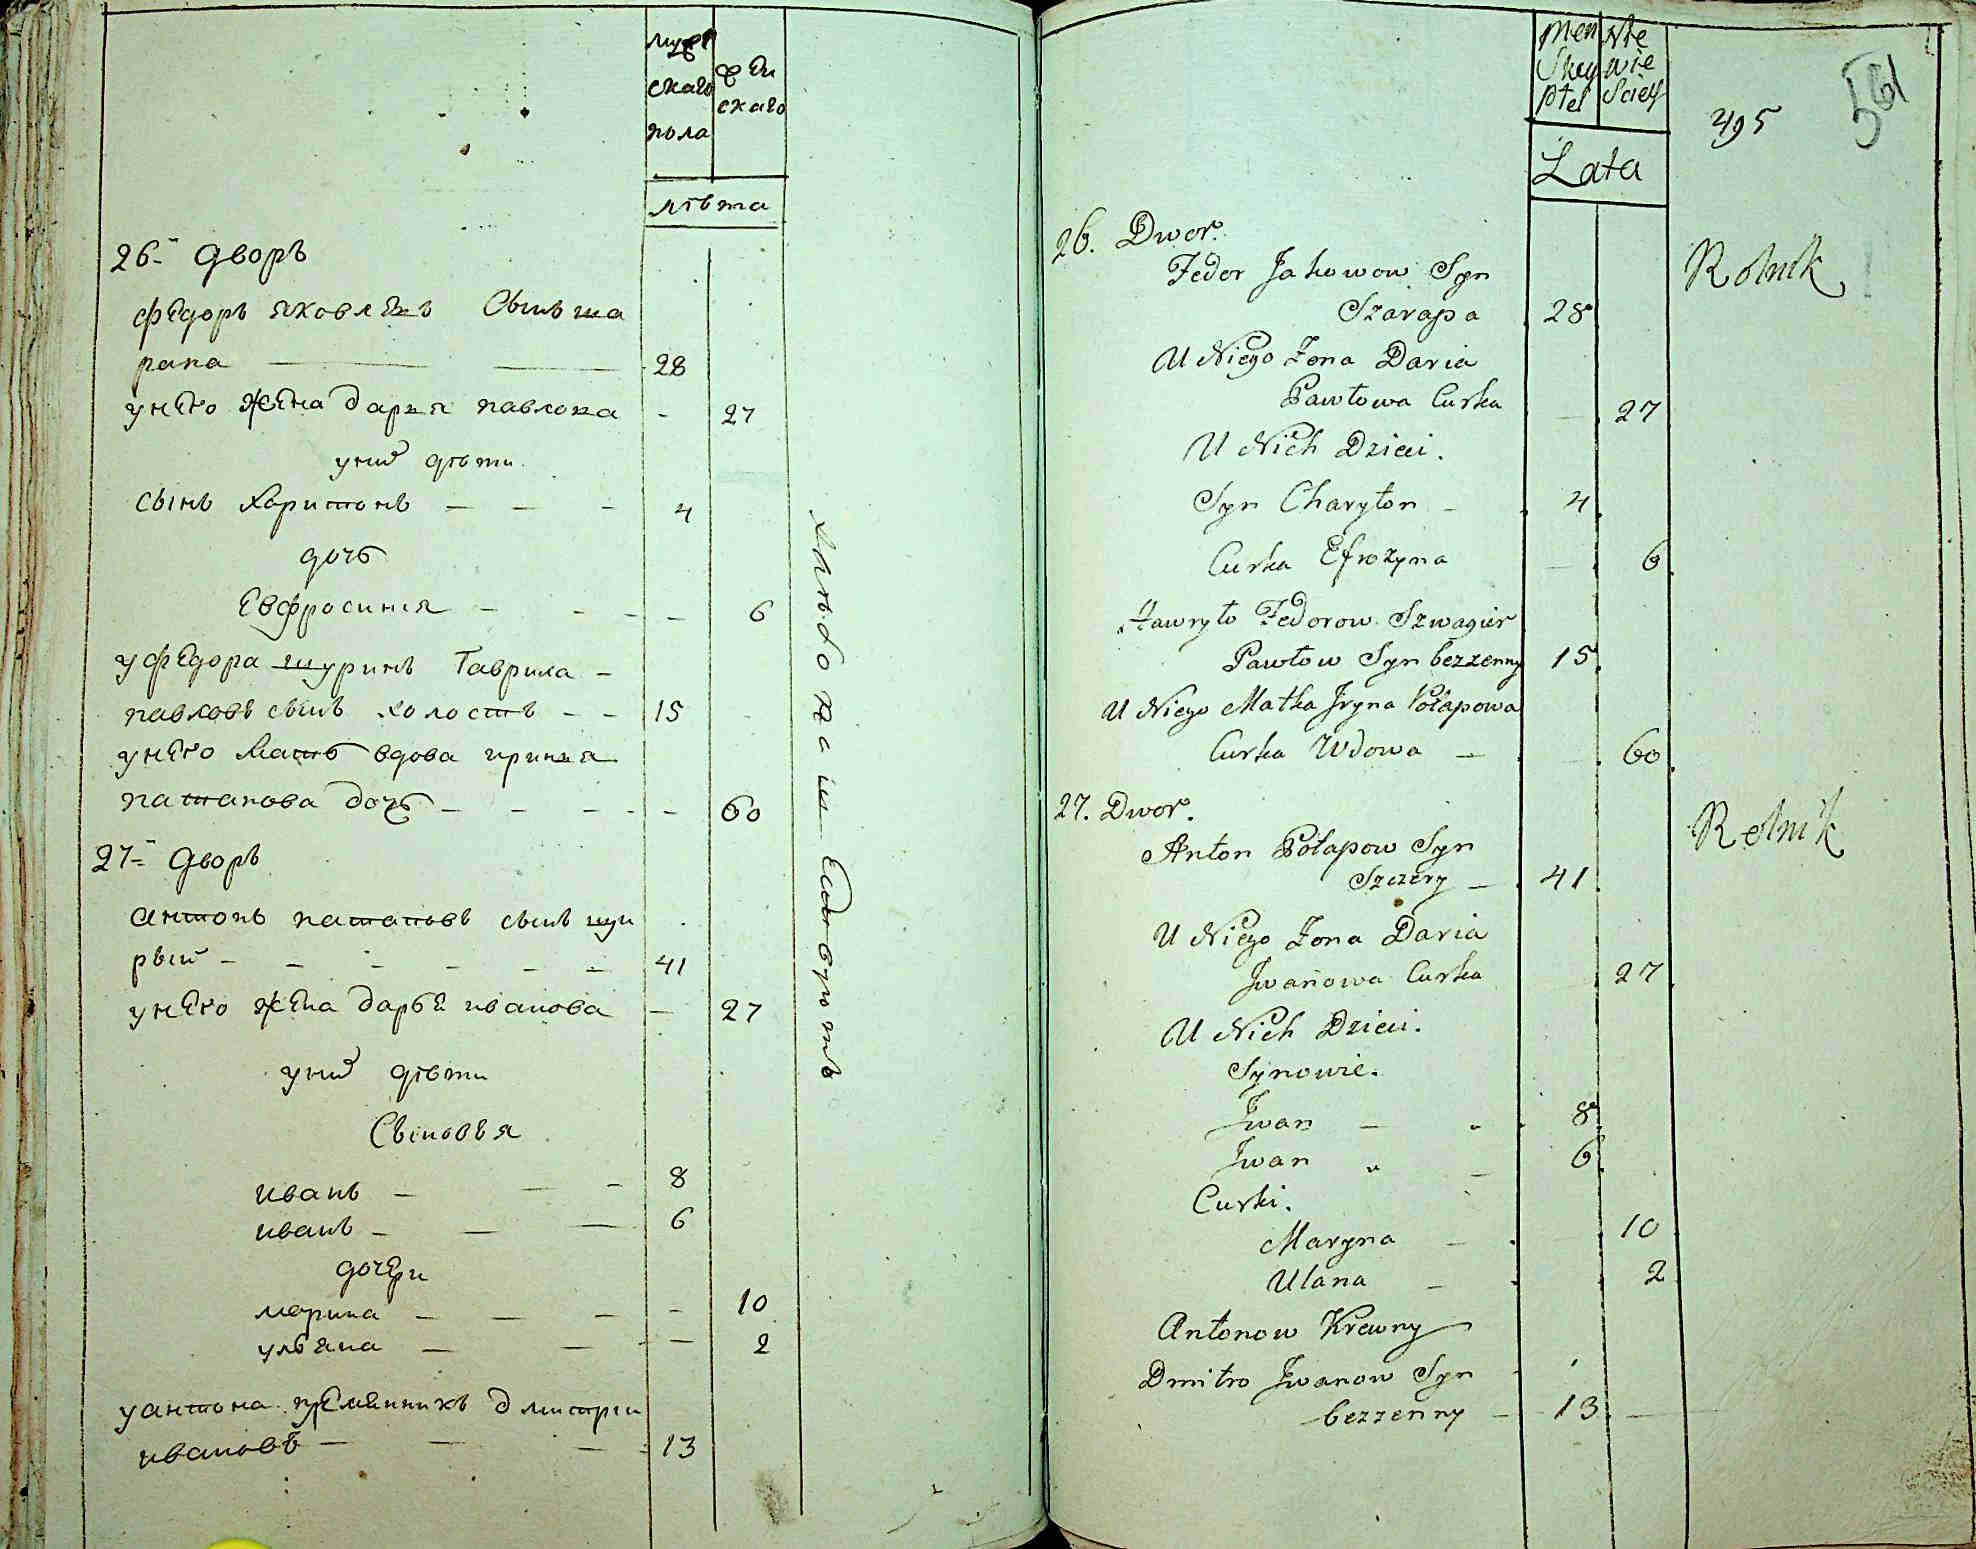 мужескаго пола
женскаго
лѣта
26й дворъ
федоръ яковлевъ сынъ ша
рапа 28
унего жена дарья павлова - 27
униͯ дѣти
сынъ харитонъ - - - 4
дочь
Евфросиния - - - - 6
уфедора шуринъ Гаврила -
павловъ сынъ холостъ - - 15
унего мать вдова ирина
патапова дочь - - - - - 60
27й дворъ
антонъ патаповъ сынъ щи
рый - - - - - - 41
унего жена дарья иванова - 27
униͯ дѣти
сыновья
иванъ - - - 8
иванъ - - - 6
дочери
марина - - - - 10
ульяна - - - - 2
уантона племянникъ дмитрии
ивановъ - - - - 13
хлѣбопашествуютъ
Men
Skey
Ptci
Nie
wie
Sciey
Lata
495
561
26. Dwor.
Fedor Jakowow Syn
Szarapa 28
Rolnik
U Niego Zona Daria
Pawłowa Curka - 27
U Nich Dzieci.
Syn Charyton - 4
Curka Efrozyna - 6
Hawryło Fedorow Szwagier
Pawłow Syn bezzenny 15
U Niego Matka Jryna Potapowa
Curka Wdowa - - 60
27. Dwor.
Anton Potapow Syn
Szczery - 41
Rolnik
U Niego Zona Daria
Jwanowa Curka 27
U Nich Dzieci.
Synowie.
Jwan - - 8
Jwan - - 6
Curki.
Maryna - - 10
Ulana - - 2
Antonow Krewny
Dmitro Jwanow Syn
bezzenny - 13 -